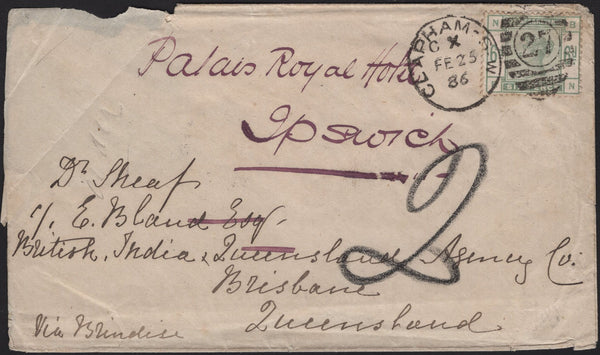 Palais Royal Hotel
Ipswich
CLAPHAM-S.W
C X
FE 25
86
27
N B
Dr Sheaf
c/. E. Bland Esq.
British, India & Queensland Agency Co.
Brisbane
Queensland
Via Brindisi
2